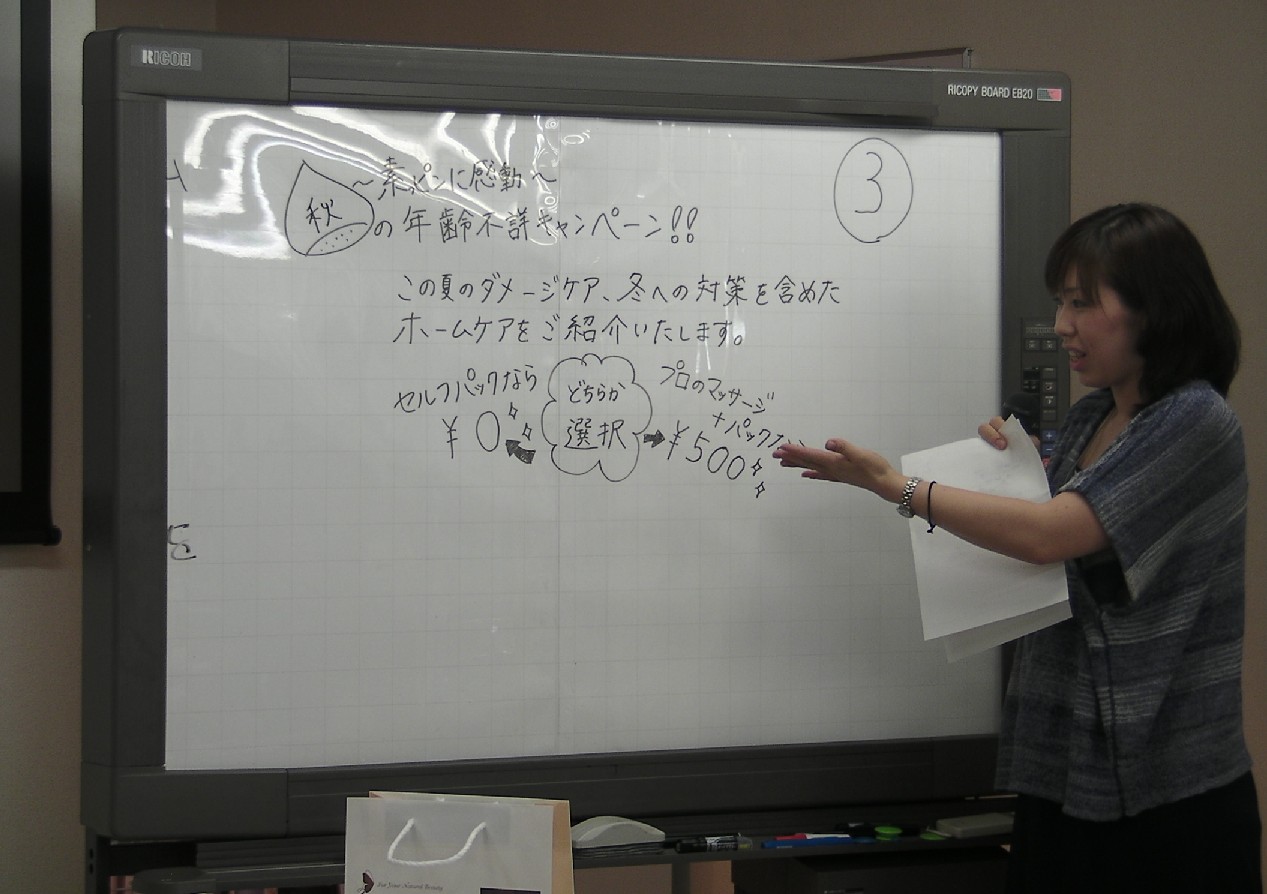 RICOH
RICOPY BOARD EB20
③
～素ッピンに感動～
秋の年齢不詳キャンペーン!!
この夏のダメージケア、冬への対策を含めた
ホームケアをご紹介いたします。
セルフパックなら
¥0
どちらか
選択
プロのマッサージ
+パックなら
¥500
For Your Natural Beauty